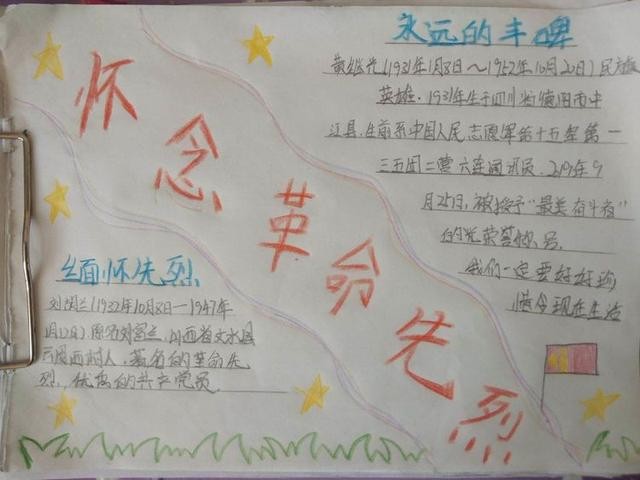 怀念革命先烈
永远的丰碑
黄继光(1931年1月8日～1952年10月20日)民族
英雄.1931年生于四川省德阳市中
江县.生前系中国人民志愿军第十五军第一
三五团二零六连通讯员.2019年9
月25日,被授予"最美奋斗者"
的光荣荣
我们一定要好好珍
惜今现在生活
缅怀先烈
刘胡兰(1932年10月8日—1947年
1月12日)原名刘富兰,山西省文水县
云周西村人,著名的革命先
烈,优秀的共产党员